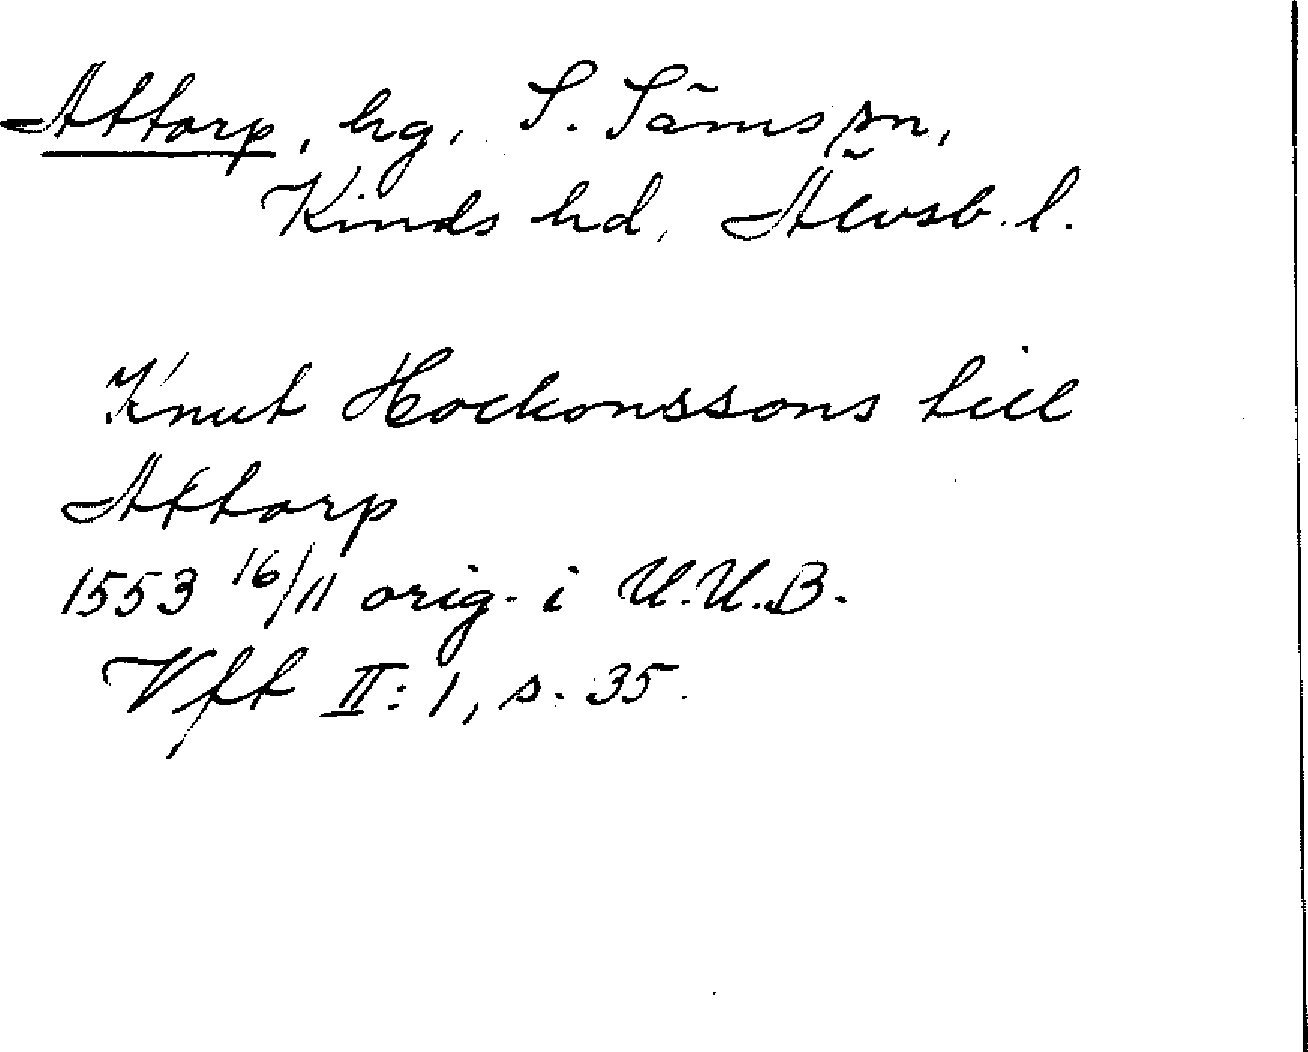 Attorp, hg, S. Säms sn,
Kinds hd, Älvsb. l.
Knut Hockonssons till
Attorp
1553 16/11 orig. i U.U.B.
Vft II: 1, s. 35.